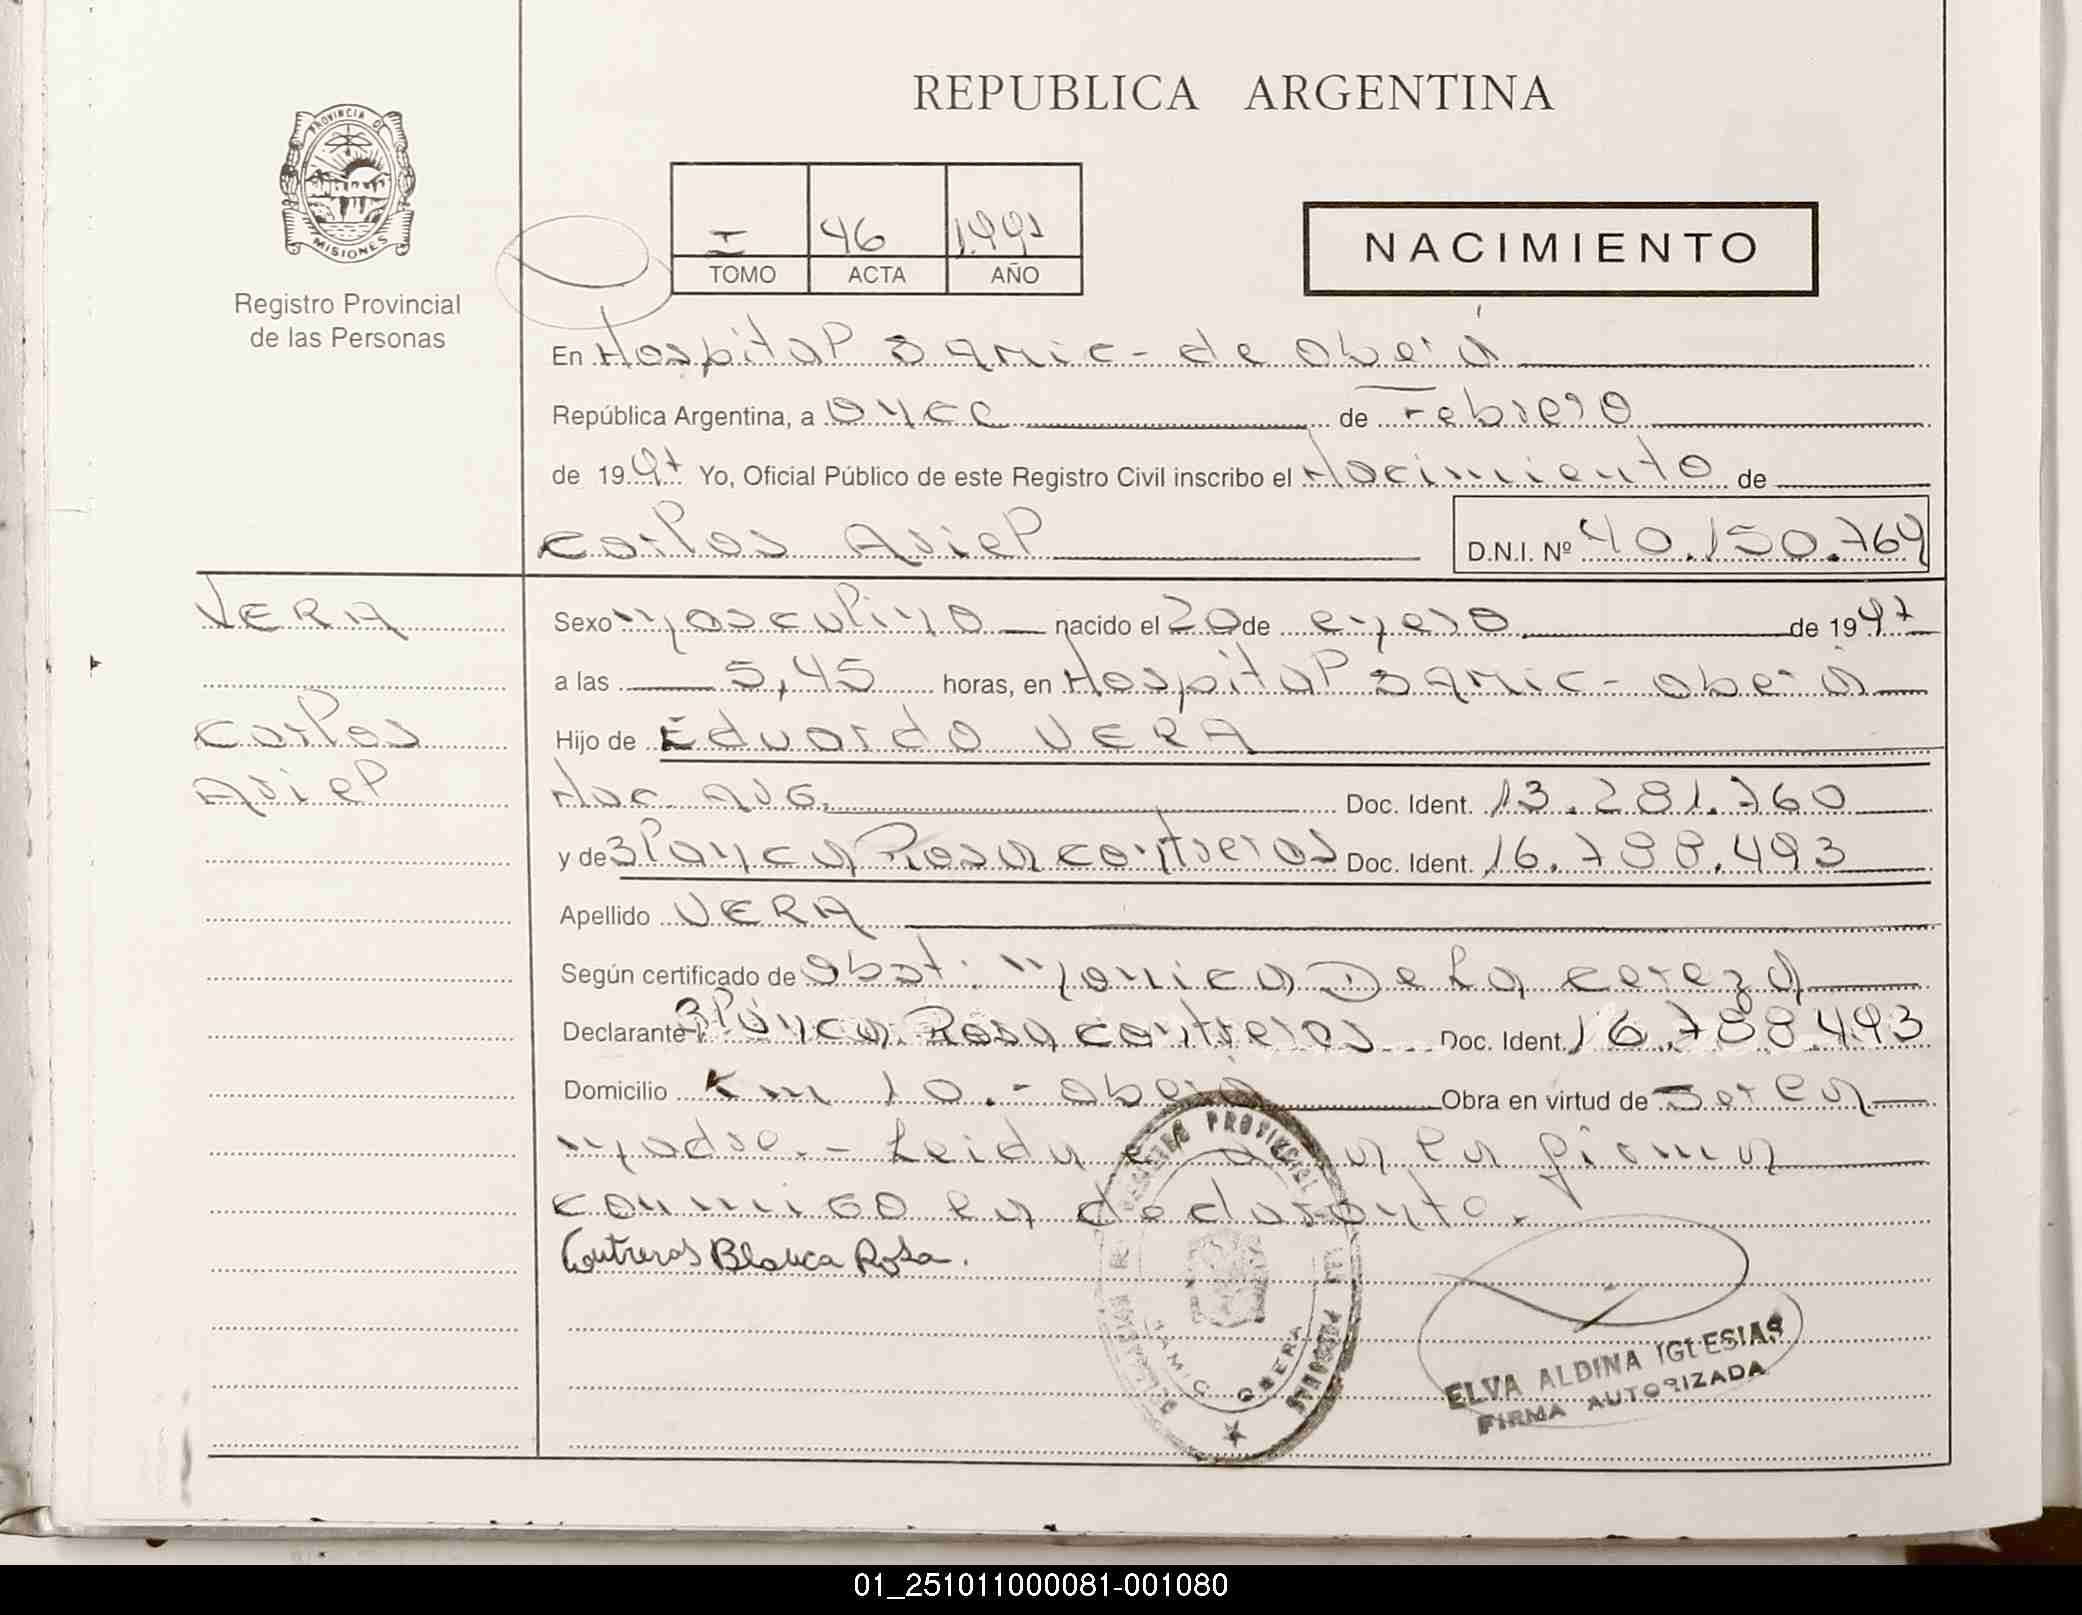 REPUBLICA ARGENTINA
PROVINCIA DE
MISIONES
Registro Provincial
de las Personas
I 46 1.997
TOMO ACTA AÑO
NACIMIENTO
En Hospital Samic - de oberá
República Argentina, a once de Febrero
de 1997 Yo, Oficial Público de este Registro Civil inscribo el Nacimiento de
Carlos Ariel D.N.I. Nº 40.150.764
VERA
Carlos
Ariel
Sexo Masculino nacido el 20 de enero de 1997
a las 5,45 horas, en Hospital Samic - oberá
Hijo de Eduardo VERA
Nac. ARG. Doc. Ident. 13.281.760
y de Blanca Rosa contreras Doc. Ident. 16.788.493
Apellido VERA
Según certificado de Obst. Monica De La cereza
Declarante Blanca Rosa contreras Doc. Ident. 16.788.493
Domicilio Km 10.- oberá Obra en virtud de Ser la
Madre.- Leida el acta la firma
conmigo la declarante.
Contreras Blanca Rosa.
REGISTRO PROVINCIAL DE LAS PERSONAS
SAMIC OBERA
ELVA ALDINA IGLESIAS
FIRMA AUTORIZADA
01_251011000081-001080